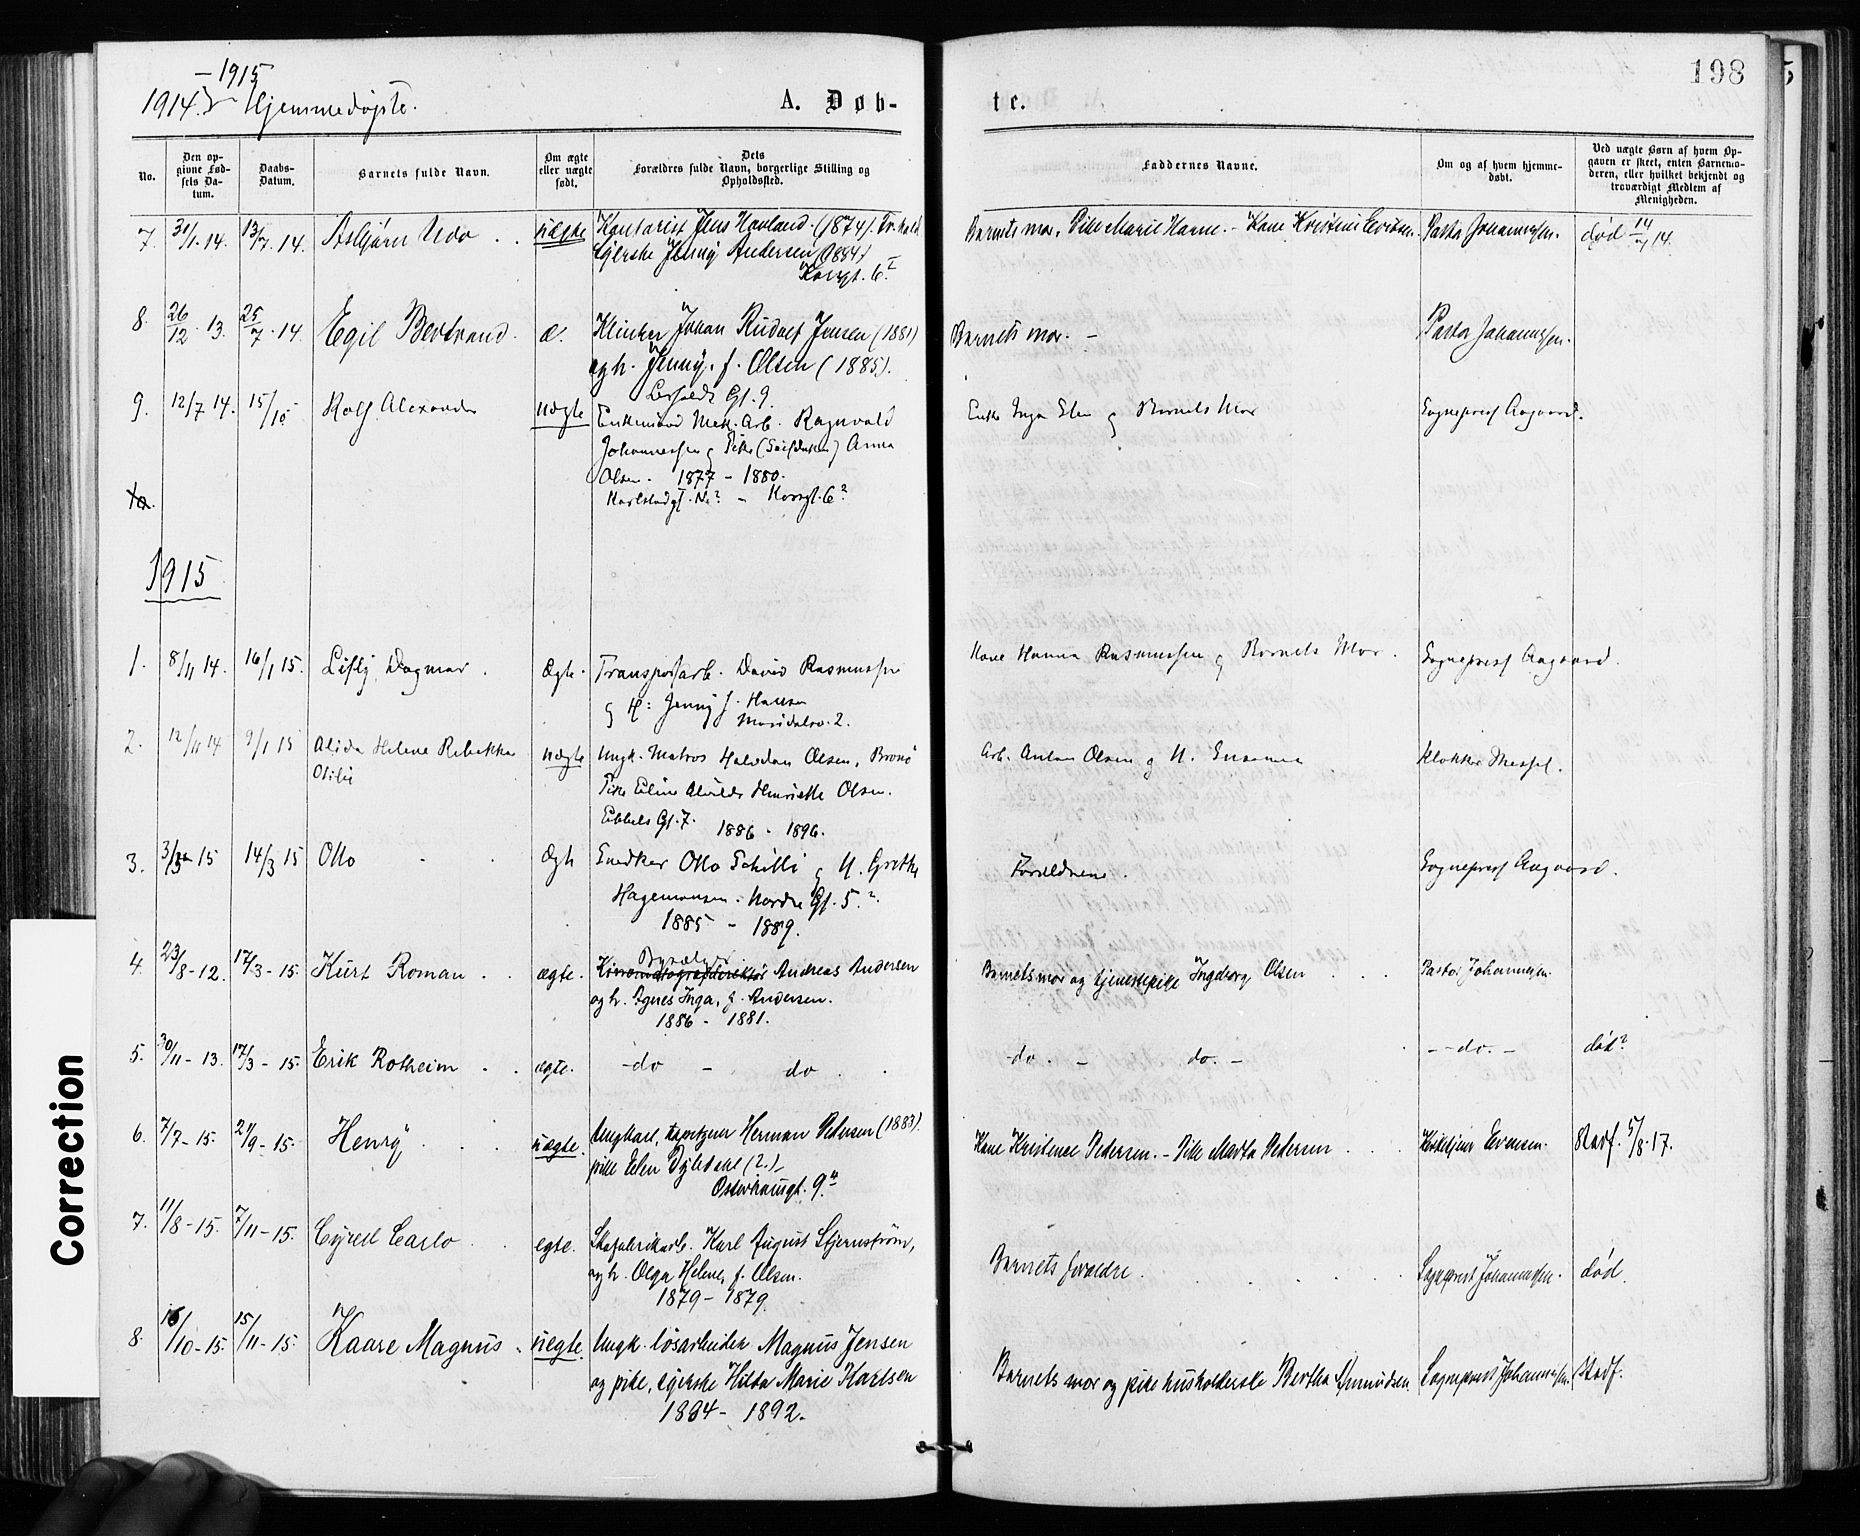 1914. - 1915
Hjemmedøpte.
A. Døb-
te.
198
No.
Den op-
givne Fød-
sels Da-
tum.
Daabs-
Datum.
Barnets fulde Navn.
Om ægte
eller uægte
født.
Dets
Forældres fulde Navn, borgerlige Stilling og
Opholdssted.
Faddernes Navne.
Om og af hvem hjemme-
døbt.
Ved uægte Børn af hvem Op-
gaven er skeet, enten Barnemo-
deren, eller hvilket bekjendt og
troværdigt Medlem af
Menigheden.
7. 31/1 14. 13/7 14. Asbjørn Udo uægte Kontorist Jens Havland (1874).
Syerske Jenny Andersen (1884)
Korsgt. 6 I
Barnets mor. Pike Marie Hanne. - Kone Kristine Evensen. Pastor Johannessen. død 14.
8. 26/12 13. 25/7 14. Egil Bertrand. æ. Klinker Johan Rudolf Jensen (1881)
og h. Jenny. f. Olsen (1885).
Gt. 9.
Barnets mor. - Pastor Johannessen.
9. 12/7 14. 15/10 Rolf Alexander uægte Enkemand Mek. Arb. Ragnvald
Johannessen og Pike Anna
Olsen. 1877 - 1880.
Karlstadgt. No? - Korsgt. 6?
Enke Inga og Barnets Mor Sogneprest Aagaard.
10.
1915
1. 8/11 14. 16/1 15. Lisly Dagmar. Ægte. Transportarb. David Rasmussen
og H: Jenny f. Hansen
Maridalsv. 2.
Kone Hanna Rasmussen og Barnets Mor. Sogneprest Aagaard.
2. 12/11 14 9/1 15 Alida Helene Rebekka
Otilie
uægte Ungk. Matros Halvdan Olsen, Brønø
Pike Eline Alvilde Henriette Olsen.
Ebbels Gt. 7. 1886 - 1896.
Arb. Anton Olsen og H. Klokker Messel.
3. 15 14/3 15 Otto Ægte Snedker Otto Schilli og H. Grethe
Hagemansen. Nordre Gt. 5.?
1885 - 1889.
Forældrene. Sogneprest Aagaard.
4. 23/8-12. 17/3-15. Kurt Roman ægte. Kinematografdirektør Andreas Andersen
og h. Agnes Inga, f. Andersen.
1886 - 1881.
Barnets mor og tjenestepike Ingeborg Olsen Pastor Johannessen
5. 30/11-13. 17/3-15. Erik Rotheim ægte. -do - do.
-do. - do. - - do. - død?
6. 7/7-15. 21/9-15. Henry uægte. Ungkarl, tapetserer Herman Pedersen (1883).
pike Elen (?)
Osterhausgt. 9.
Kone Kristence Pedersen. - Pike Marta Pedersen Kirketjener Evensen. Stadf. 5/8-17.
7. 11/8-15. 7/11-15. Cyrell Carlo egte. Skofabrikarb. Karl August Stjernstrøm,
og h. Olga Helene, f. Olsen.
1879 - 1879.
Barnets forældre. Sogneprest Johannessen. død.
8. 16/10-15. 15/11-15. Kaare Magnus uegte. Ungk. løsarbeider Magnus Jensen
og pike, syerske Hilda Marie Karlsen
1884 - 1892.
Barnets mor og pike husholderske Bertha Sogneprest Johannessen. Stadf.
Correction